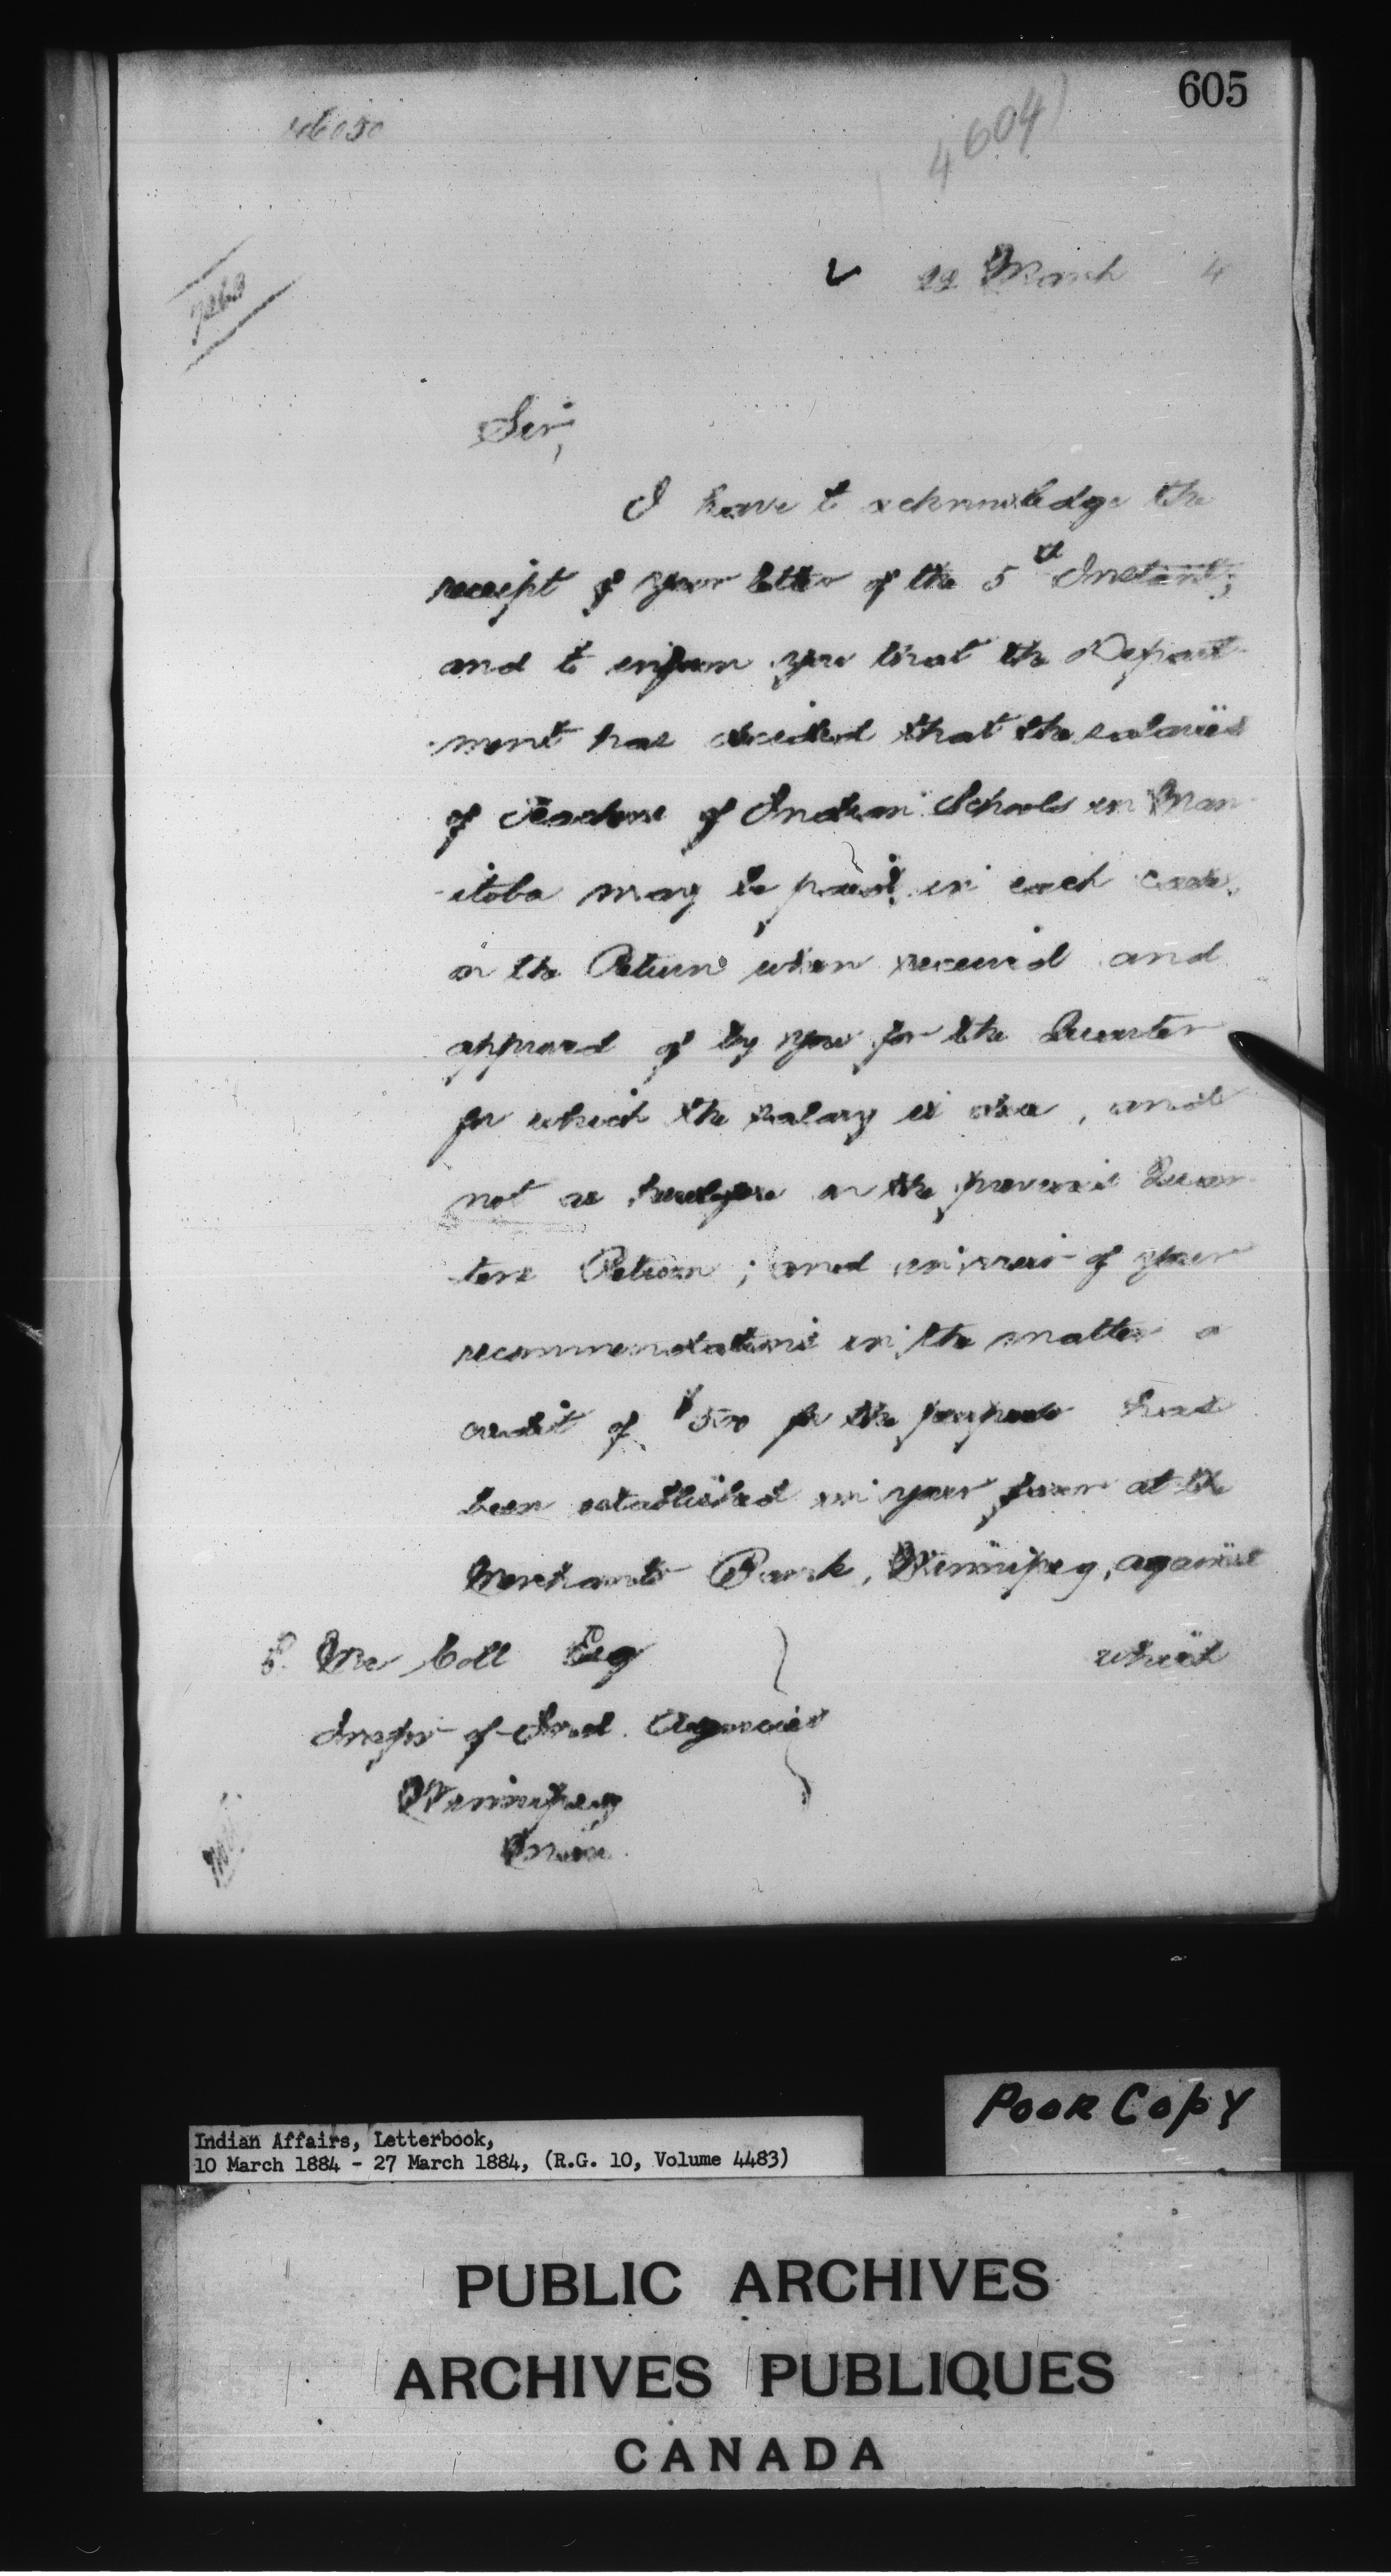 605
4604)
22 March 4
Sir,
I have to acknowledge the
receipt of your letter of the 5th Instant,
and to inform you that the Depart-
-ment has decided that the salaries
of Teachers of Indian Schools in Man-
-itoba may be paid, in each case,
on the Return when received and
approved of by you for the Quarter
for which the salary is due, and
not as heretofore on the previous Quar-
-ters Return; and in view of your
recommendations in the matter a
credit of $500 for the purpose has
been established in your favor at the
Merchants Bank, Winnipeg, against
which
E. Mc Coll Esq
Inspr of Ind. Agencies
Winnipeg
Man.
Poor Copy
Indian Affairs, Letterbook,
10 March 1884 - 27 March 1884, (R.G. 10, Volume 4483)
PUBLIC ARCHIVES
ARCHIVES PUBLIQUES
CANADA